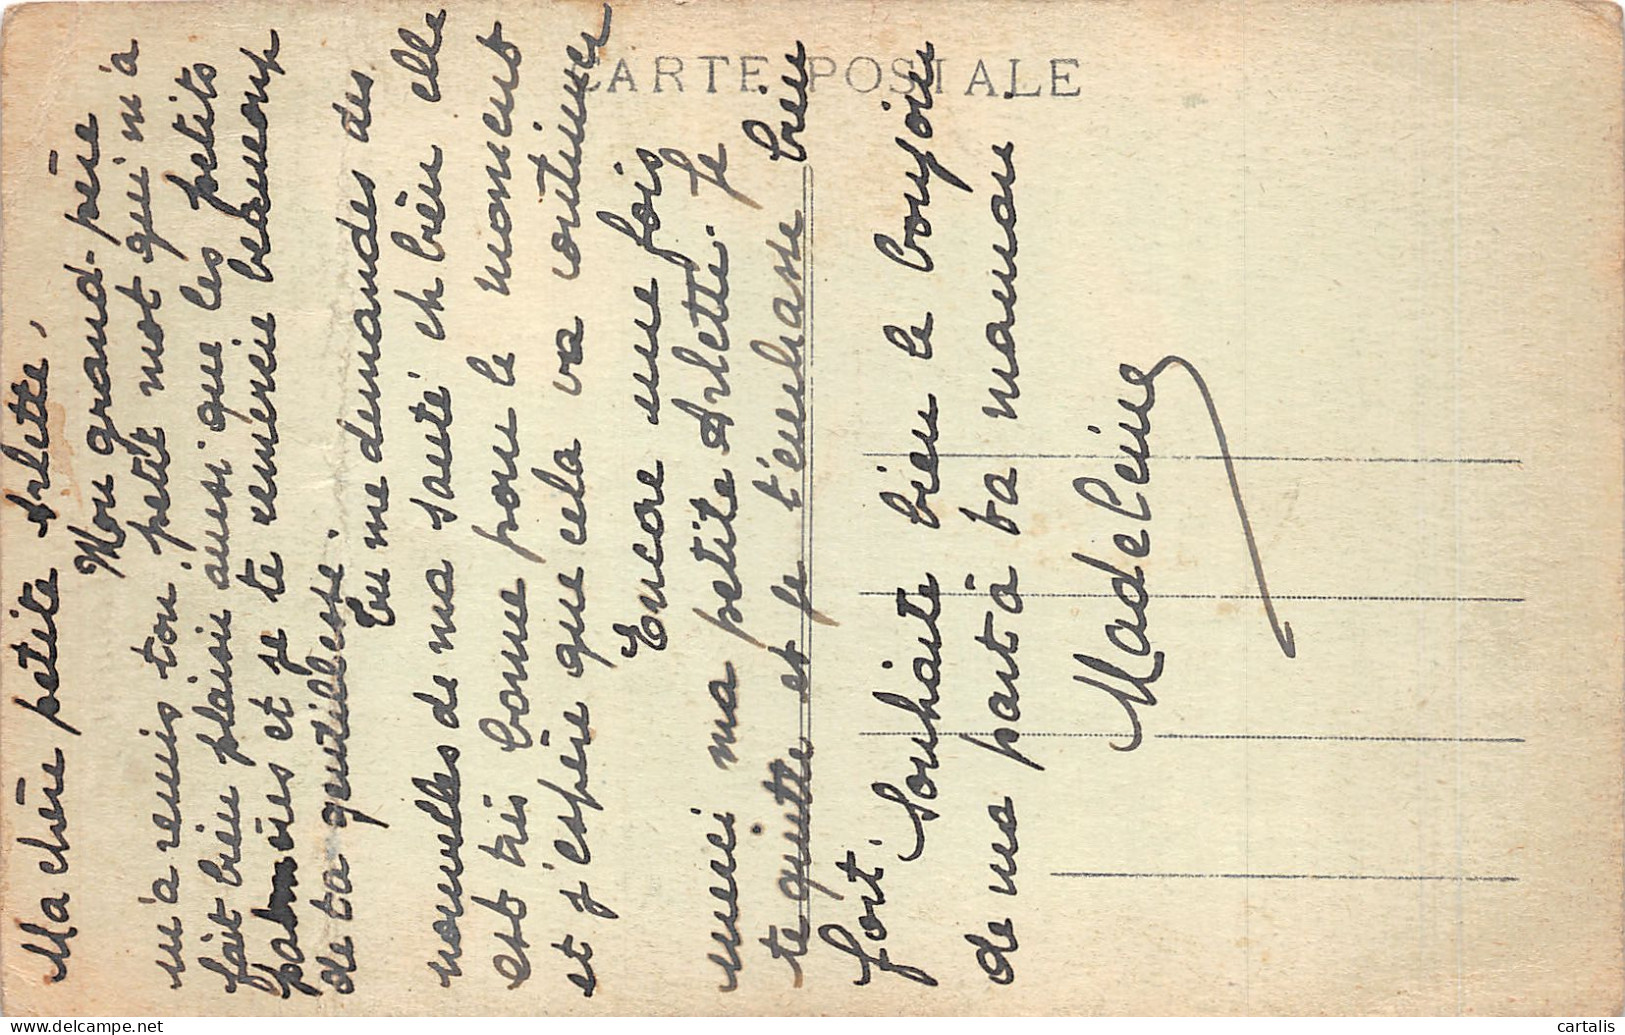 CARTE POSTALE
Ma chère petite Arlette,
Mon grand-père
m'a remis ton petit mot qui m'a
fait bien plaisir aussi que les petits
et je te remercie beaucoup
de ta gentillesse.
Tu me demandes des
nouvelles de ma santé eh bien elle
est très bonne pour le moment
et j'espère que cela va continuer
Encore une fois
merci ma petite Arlette. Je
te quitte et je t'embrasse bien
fort. Souhaite bien le bonjour
de ma part à ta maman.
Madeleine
cartalis
http://www.delcampe.net